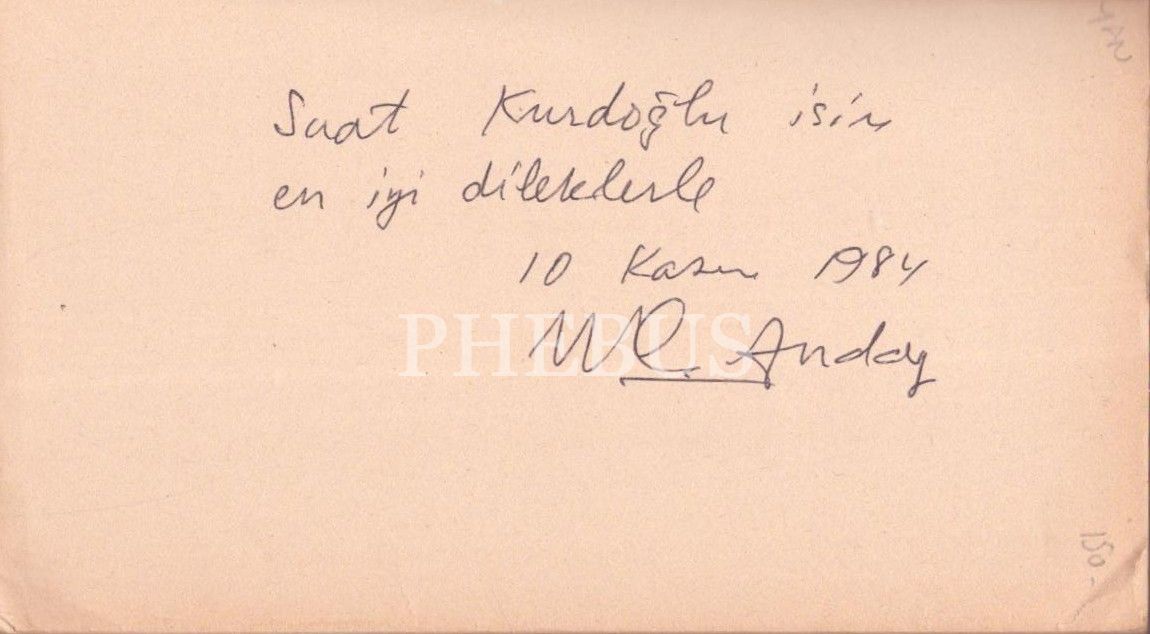 Suat Kurdoğlu için
en iyi dileklerle
10 Kasım 1984
PHEBUS
MC. Anday
150.-